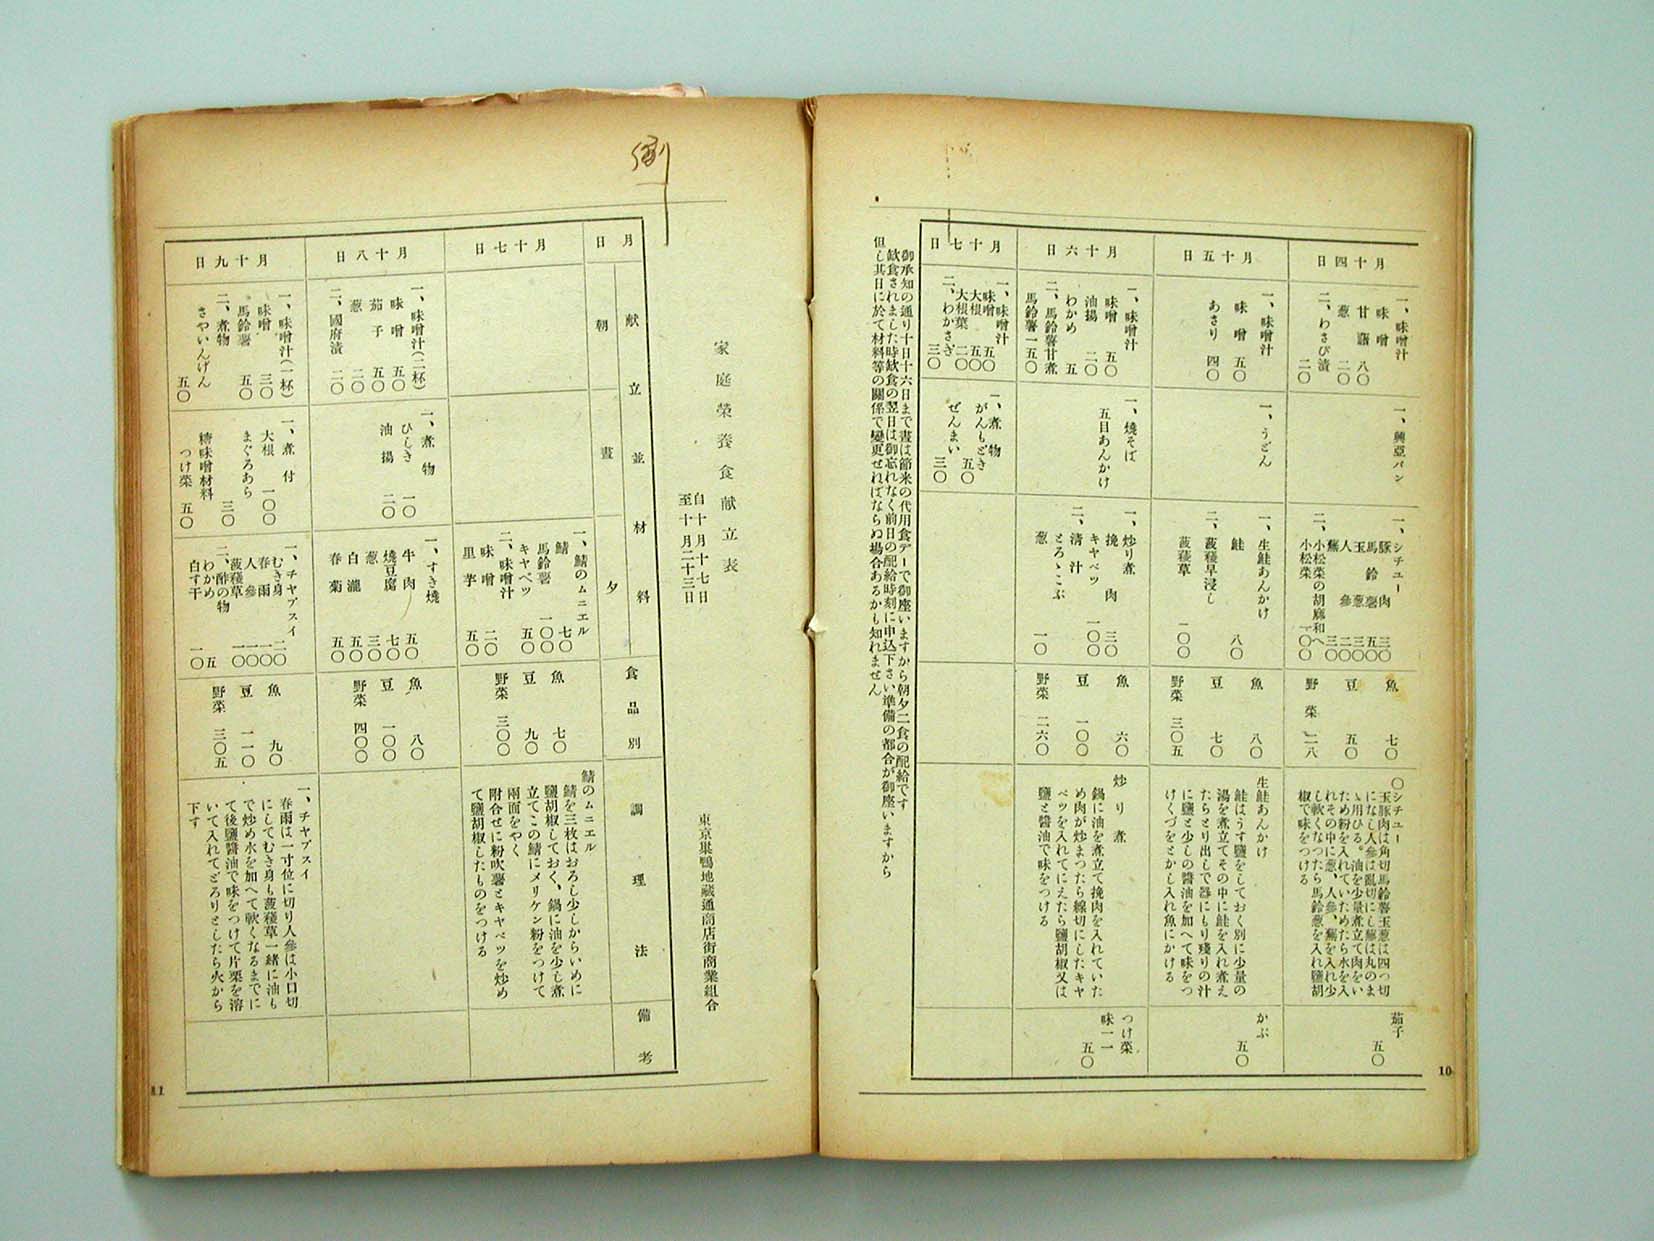 月十四日
一、味噌汁
味噌
甘藷 八〇
葱 二〇
二、わさび漬 二〇
一、興亞パン
一、シチユー
豚肉 三〇
馬鈴薯 五〇
玉葱 三〇
人參 二〇
蕪 三〇
二、小松菜の胡麻和へ
小松菜 一〇〇
魚 七〇
豆 五〇
野菜 二八
〇シチユー
玉豚肉は角切馬鈴薯玉葱は四つ切
になし人參は亂切にし蕪は丸のま
ゝ用ひる。油を少量煮立て肉をい
ため粉を入れていためたら水を入
れその中に葱、人參、蕪を入れ少
し軟くなつたら馬鈴葱を入れ鹽胡
椒で味をつける
茄子 五〇
月十五日
一、味噌汁
味噌 五〇
あさり 四〇
一、うどん
一、生鮭あんかけ
鮭 八〇
二、菠薐早浸し
菠薐草 一〇〇
魚 八〇
豆 七〇
野菜 三〇五
生鮭あんかけ
鮭はうす鹽をしておく別に少量の
湯を煮立てその中に鮭を入れ煮え
たらとり出して器にもり殘りの汁
に鹽と少しの醬油を加へて味をつ
けくづをとかし入れ魚にかける
かぶ 五〇
月十六日
一、味噌汁
味噌 五〇
油揚 二〇
わかめ 五
二、馬鈴薯甘煮
馬鈴薯 一五〇
一、燒そば
五目あんかけ
一、炒り煮
挽肉 三〇
キヤベツ 一〇〇
二、清汁
とろゝこぶ
葱 一〇
魚 六〇
豆 一〇〇
野菜 二六〇
炒り煮
鍋に油を煮立て挽肉を入れていた
め肉が炒まつたら線切にしたキヤ
ベツを入れてにえたら鹽胡椒又は
鹽と醬油で味をつける
つけ菜
味一一 五〇
月十七日
一、味噌汁
味噌 五〇
大根 五〇
大根葉 二〇
二、わかさぎ 三〇
一、煮物
がんもどき 五〇
ぜんまい 三〇
御承知の通り十日十六日まで晝は節米の代用食デーで御座いますから朝夕二食の配給です
飮食されました時飮食の翌日は御忘れなく前日の配給時刻に申込下さい準備の都合が御座いますから
但し其日に於て材料等の關係で變更せねばならぬ場合あるかも知れません
10
家庭榮養食献立表
自十月十七日
至十月二十三日
東京巢鴨地藏通商店街商業組合
月日
献立並材料
朝
晝
夕
食品別
調理法
備考
月十七日
一、鯖のムニエル
鯖 七〇
馬鈴薯 一〇〇
キヤベツ 五〇
二、味噌汁
味噌 二〇
里芋 五〇
魚 七〇
豆 九〇
野菜 三〇〇
鯖のムニエル
鯖を三枚はおろし少しからいめに
鹽胡椒しておく、鍋に油を少し煮
立てこの鯖にメリケン粉をつけて
兩面をやく
附合せに粉吹薯とキヤベツを炒め
て鹽胡椒したものをつける
月十八日
一、味噌汁(二杯)
味噌 五〇
茄子 五〇
葱 二〇
二、國府漬 二〇
一、煮物
ひじき 一〇
油揚 二〇
一、すき燒
牛肉 五〇
燒豆腐 七〇
葱 三〇
白瀧 五〇
春菊 五〇
魚 八〇
豆 一〇〇
野菜 四〇〇
月十九日
一、味噌汁(一杯)
味噌 三〇
馬鈴薯 五〇
二、煮物
さやいんげん 五〇
一、煮付
大根 一〇〇
まぐろあら 三〇
糠味噌材料
つけ菜 五〇
一、チヤプスイ
むき身 二〇
春雨 一〇
人參 一〇
菠薐草 一〇
二、酢の物
わかめ 五
白す干 一〇
魚 九〇
豆 一一〇
野菜 三〇五
一、チヤプスイ
春雨は一寸位に切り人參は小口切
にしてむき身も菠薐草一緒に油も
で炒め水を加へて軟くなるまでに
て後鹽醬油で味をつけて片栗を溶
いて入れてどろりとしたら火から
下す
11